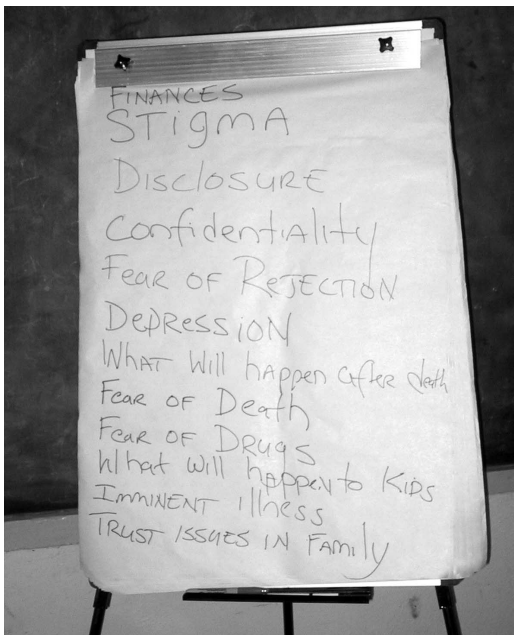 FINANCES
STigmA
DISCLOSURE
Confidentiality
Fear of Rejection
Depression
What Will happen after death
Fear of Death
Fear of Drugs
What Will happen to Kids
Imminent illness
Trust issues in Family